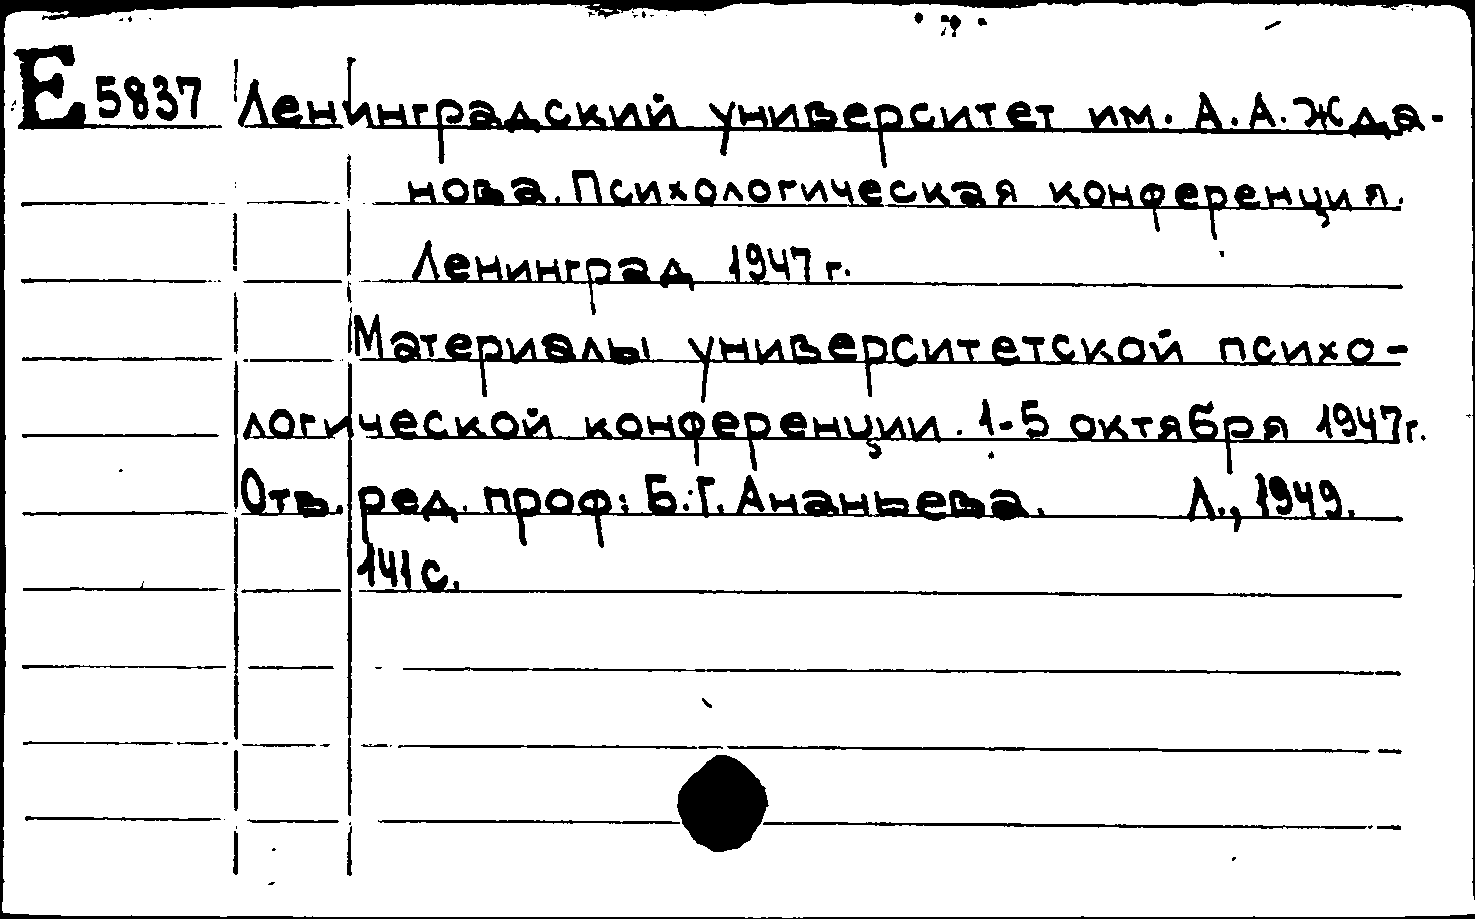 Е 5837 Ленинградский университет им. А. А. Жда-
нова. Психологическая конференция.
Ленинград 1947 г.
Материалы университетской психо-
логической конференции. 1-5 октября 1947г.
Отв. ред. проф: Б.Г. Ананьева. Л., 1949.
141 с.